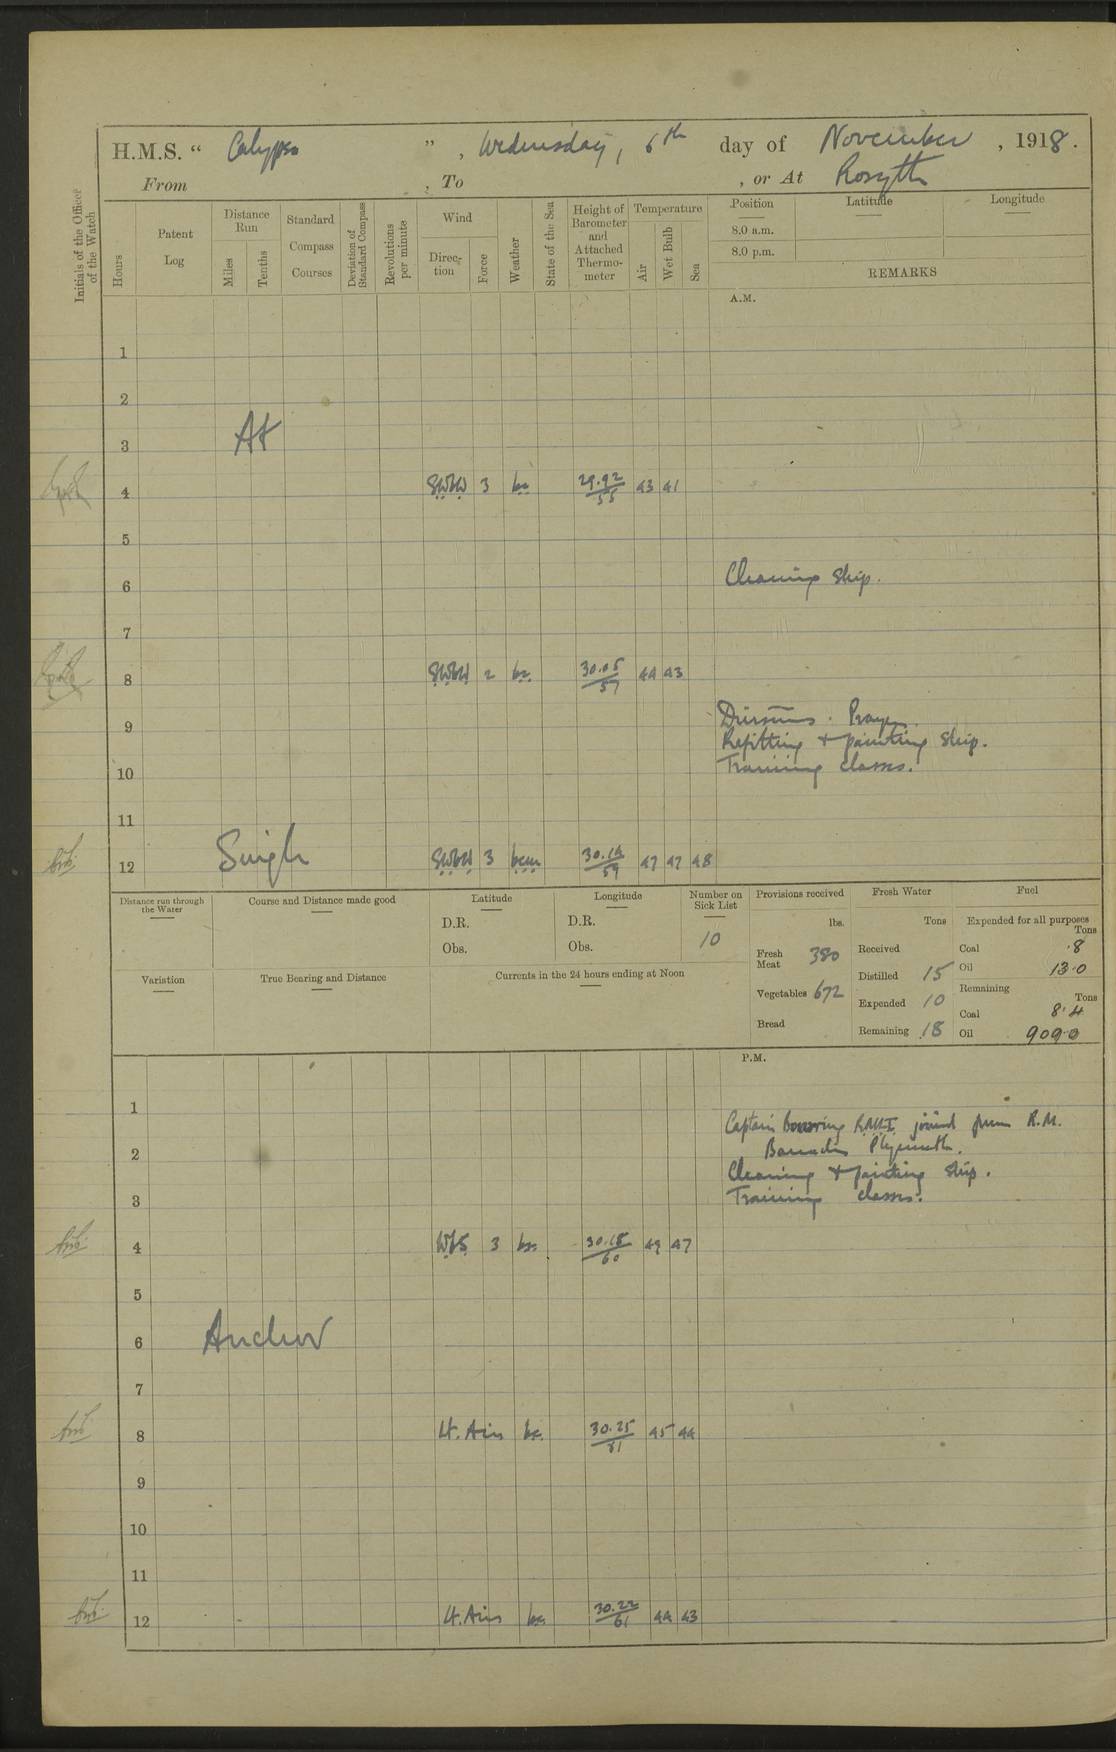 H.M.S. “ Calypso ” , Wednesday, 6th day of November , 1918.
From , To , or At Rosyth
Initials of the Officer of the Watch
Hours
Patent Log
Distance Run
Miles
Tenths
Standard Compass Courses
Deviation of Standard Compass
Revolutions per minute
Wind
Direction
Force
Weather
State of the Sea
Height of Barometer and Attached Thermometer
Temperature
Air
Wet Bulb
Sea
Position
Latitude
Longitude
8.0 a.m.
8.0 p.m.
REMARKS
A.M.
1
2
At
3
4 SWbW 3 bc 29.92/55 43 41
5
Cleaning ship.
6
7
8 SWbW 2 bc. 30.05/57 44 43
Divisions. Prayers.
9
Refitting + painting ship.
Training classes.
10
11
Single
12 SWbW 3 bcm 30.14/59 47 47 48
Distance run through the Water
Course and Distance made good
Latitude
D.R.
Obs.
Longitude
D.R.
Obs.
Number on Sick List
10
Provisions received
lbs.
Fresh Meat 380
Vegetables 672
Bread
Fresh Water
Tons
Received
Distilled 15
Expended 10
Remaining 18
Fuel
Expended for all purposes
Tons
Coal ·8
Oil 13·0
Remaining
Tons
Coal 8·4
Oil 909·0
Variation
True Bearing and Distance
Currents in the 24 hours ending at Noon
P.M.
1
Captain RMLI joined from R.M.
Barracks Plymouth.
2
Cleaning + painting ship.
Training classes.
3
4 WbS 3 30.18/60 49 47
5
Anchor
6
7
8 Lt. Airs bc. 30.25/61 45 44
9
10
11
12 Lt. Airs bc 30.22/61 44 43